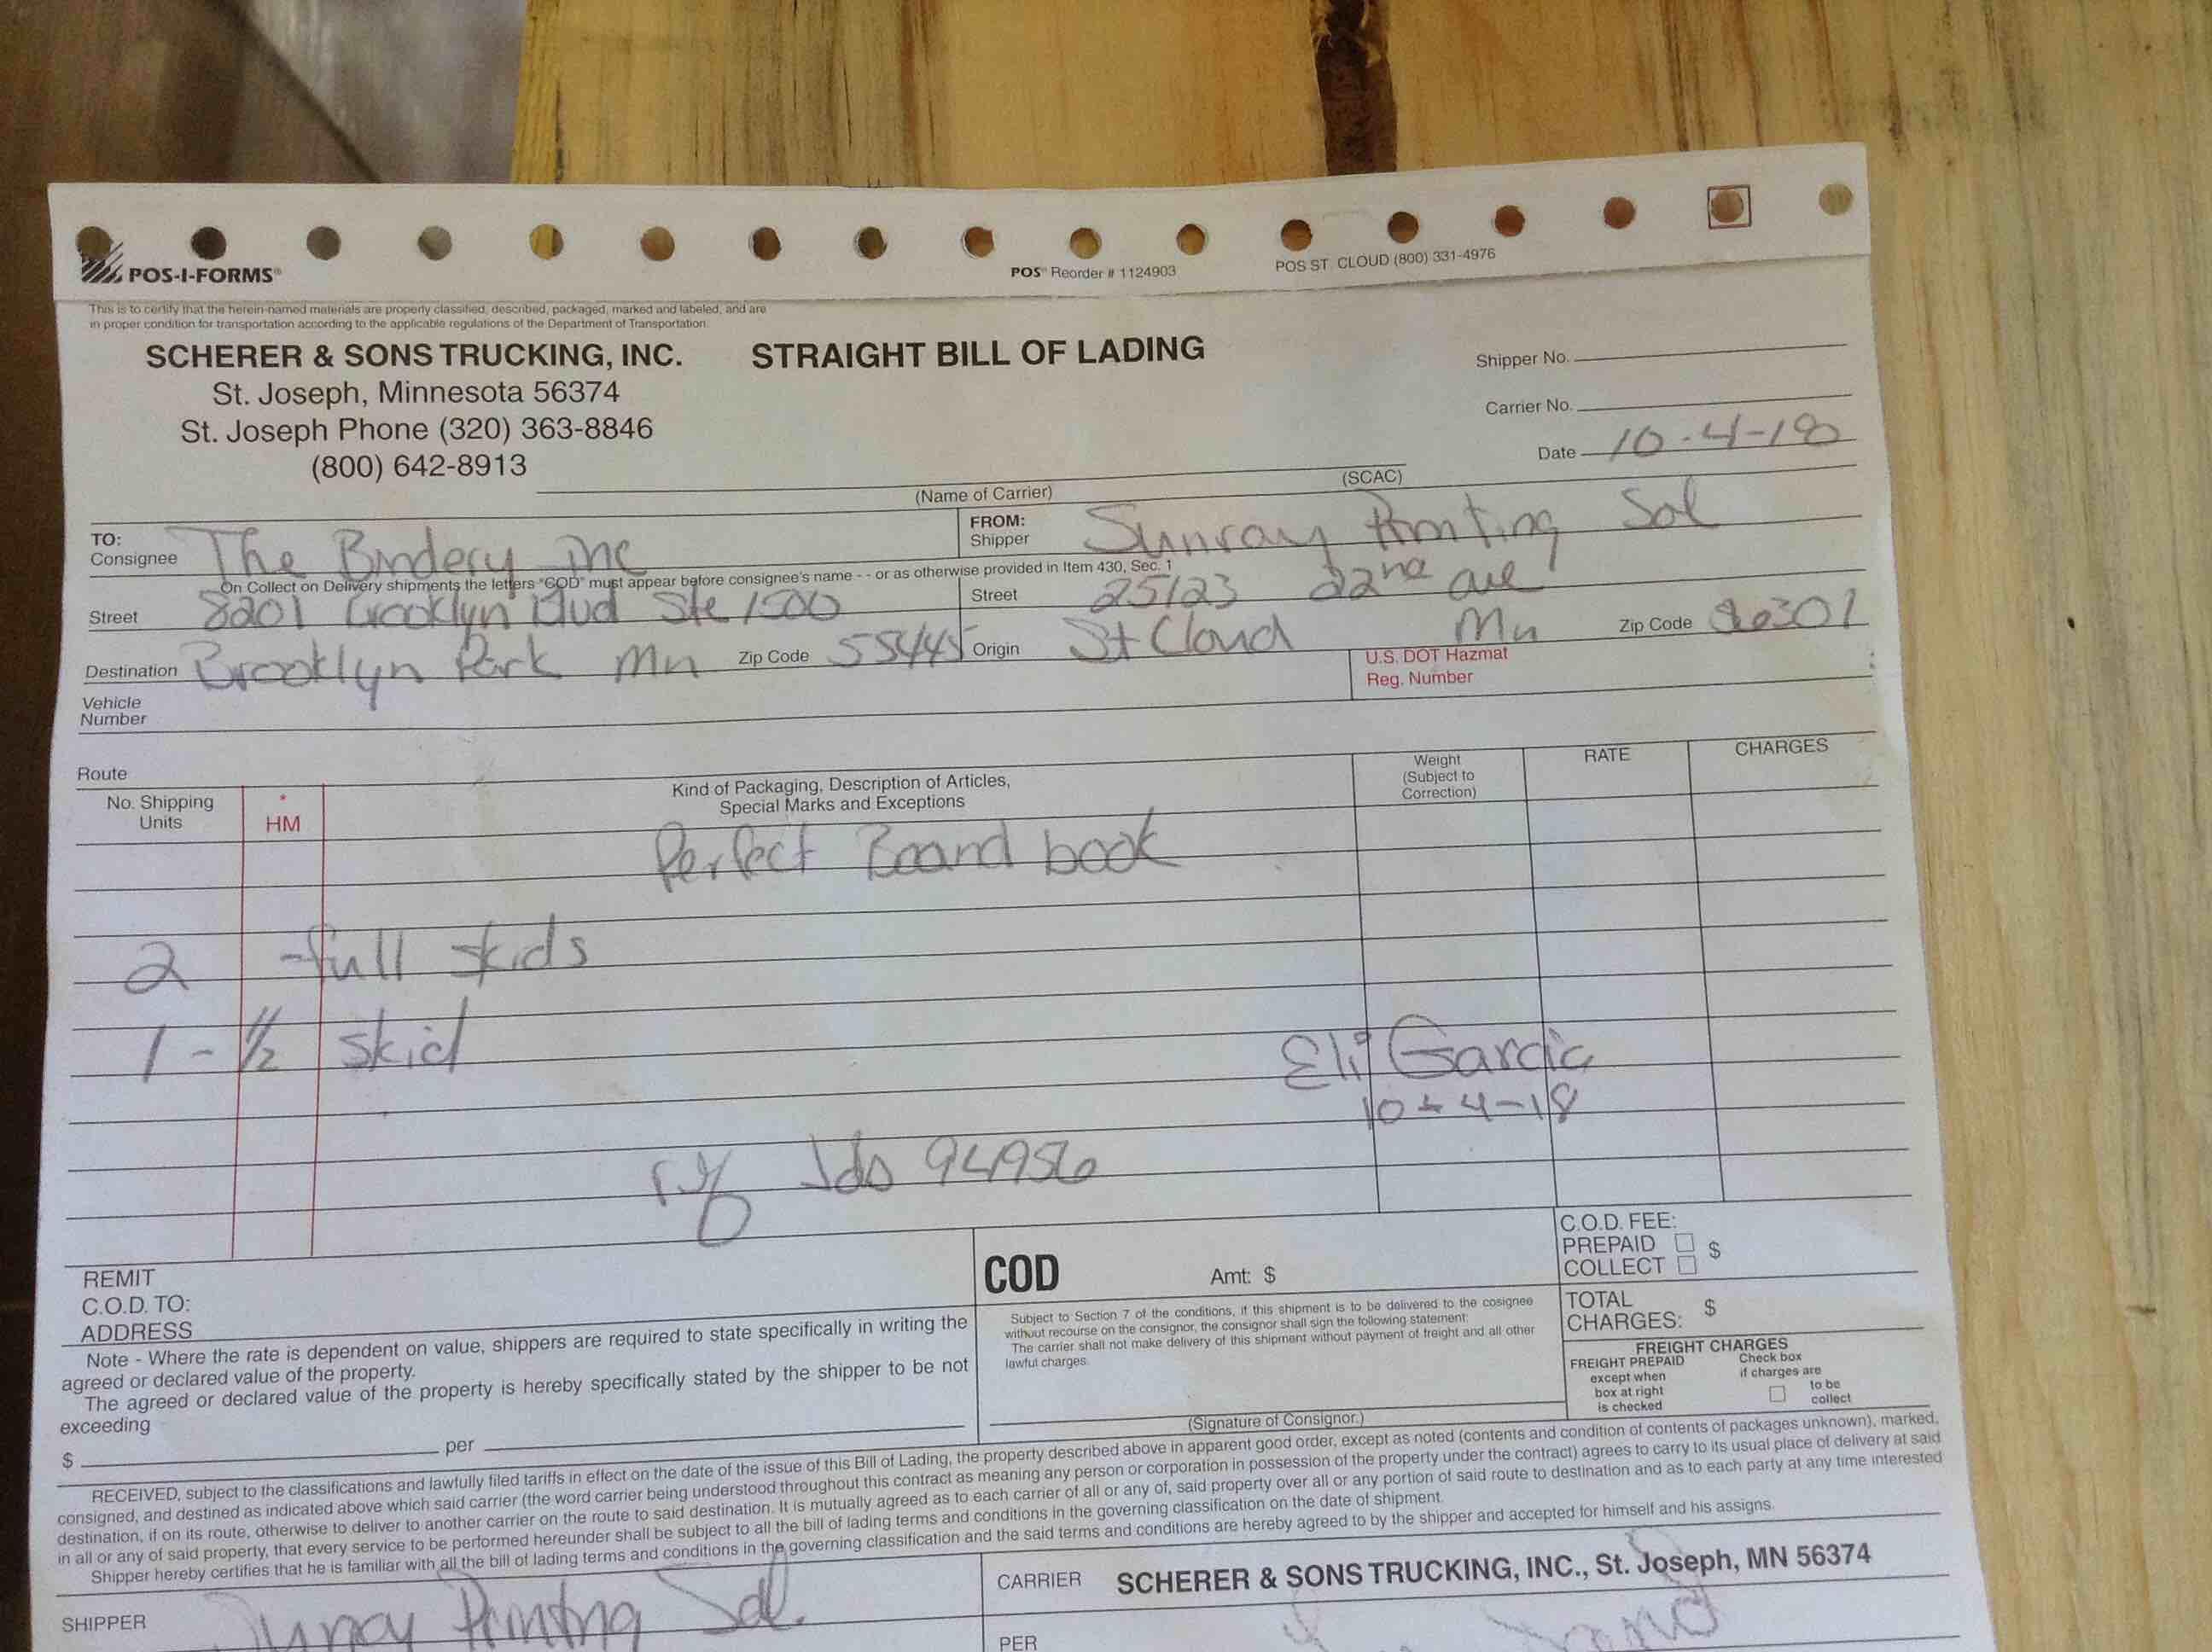 POS-I-FORMS®
POS® Reorder # 1124903
POS ST. CLOUD (800) 331-4976
This is to certify that the herein-named materials are properly classified, described, packaged, marked and labeled, and are
in proper condition for transportation according to the applicable regulations of the Department of Transportation.
SCHERER & SONS TRUCKING, INC.
St. Joseph, Minnesota 56374
St. Joseph Phone (320) 363-8846
(800) 642-8913
STRAIGHT BILL OF LADING
Shipper No.
Carrier No.
Date 10-4-18
(Name of Carrier)
(SCAC)
TO:
Consignee The Bindery Inc
FROM:
Shipper Sunray Printing Sol
On Collect on Delivery shipments the letters "COD" must appear before consignee's name - - or as otherwise provided in Item 430, Sec. 1
Street 8201 Brooklyn Blvd Ste 1500
Street 25123 22nd ave
Destination Brooklyn Park Mn Zip Code 55445
Origin St Cloud Mn Zip Code 56301
U.S. DOT Hazmat
Reg. Number
Vehicle
Number
Route
No. Shipping
Units
*
HM
Kind of Packaging, Description of Articles,
Special Marks and Exceptions
Weight
(Subject to
Correction)
RATE
CHARGES
Perfect Bound book
2 - full skids
1 - 1/2 skid
Eli Garcia
10-4-18
94956
REMIT
C.O.D. TO:
ADDRESS
COD
Amt: $
C.O.D. FEE:
PREPAID $
COLLECT
Note - Where the rate is dependent on value, shippers are required to state specifically in writing the
agreed or declared value of the property.
The agreed or declared value of the property is hereby specifically stated by the shipper to be not
exceeding
$ per
Subject to Section 7 of the conditions, if this shipment is to be delivered to the cosignee
without recourse on the consignor, the consignor shall sign the following statement:
The carrier shall not make delivery of this shipment without payment of freight and all other
lawful charges.
(Signature of Consignor.)
TOTAL
CHARGES: $
FREIGHT CHARGES
FREIGHT PREPAID
except when
box at right
is checked
Check box
if charges are
to be
collect
RECEIVED, subject to the classifications and lawfully filed tariffs in effect on the date of the issue of this Bill of Lading, the property described above in apparent good order, except as noted (contents and condition of contents of packages unknown), marked,
consigned, and destined as indicated above which said carrier (the word carrier being understood throughout this contract as meaning any person or corporation in possession of the property under the contract) agrees to carry to its usual place of delivery at said
destination, if on its route, otherwise to deliver to another carrier on the route to said destination. It is mutually agreed as to each carrier of all or any of, said property over all or any portion of said route to destination and as to each party at any time interested
in all or any of said property, that every service to be performed hereunder shall be subject to all the bill of lading terms and conditions in the governing classification on the date of shipment.
Shipper hereby certifies that he is familiar with all the bill of lading terms and conditions in the governing classification and the said terms and conditions are hereby agreed to by the shipper and accepted for himself and his assigns.
SHIPPER Sunray Printing Sol.
CARRIER SCHERER & SONS TRUCKING, INC., St. Joseph, MN 56374
PER